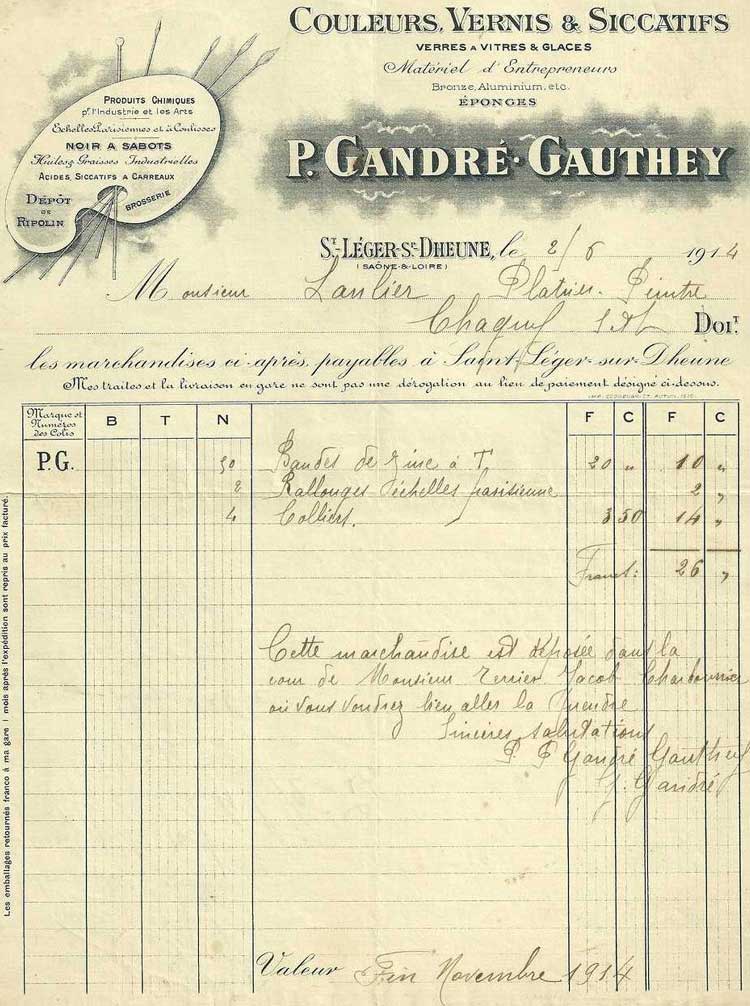 COULEURS, VERNIS & SICCATIFS
VERRES A VITRES & GLACES
Matériel d'Entrepreneurs
Bronze, Aluminium, etc.
ÉPONGES
P. GANDRÉ·GAUTHEY
PRODUITS CHIMIQUES
pr l'Industrie et les Arts
Echelles Parisiennes et à Coulisses
NOIR A SABOTS
Huiles & Graisses Industrielles
ACIDES, SICCATIFS A CARREAUX
DÉPÔT
DE
RIPOLIN
BROSSERIE
ST-LÉGER-SR-DHEUNE, le 2/6 1914
(SAÔNE-&-LOIRE)
Monsieur Lanlier Platrier-Peintre
Chagny S&L DOIT
les marchandises ci-après, payables à Saint-Léger-sur-Dheune
Mes traites et la livraison en gare ne sont pas une dérogation au lieu de paiement désigné ci-dessous.
Marque et Numéros des Colis B T N F C F C
P.G. 50 Bandes de zinc à T 20 " 10 "
2 Rallonges d'échelles parisienne 2 "
4 Colliers. 3 50 14 "
Francs: 26 "
Cette marchandise est déposée dans la
cour de Monsieur Terrier Jacob Charbonnier
où vous voudrez bien aller la prendre
Sincères salutations
P. P Gandré Gauthey
G. Gandré
Valeur Fin Novembre 1914
Les emballages retournés franco à ma gare 1 mois après l'expédition sont repris au prix facturé.